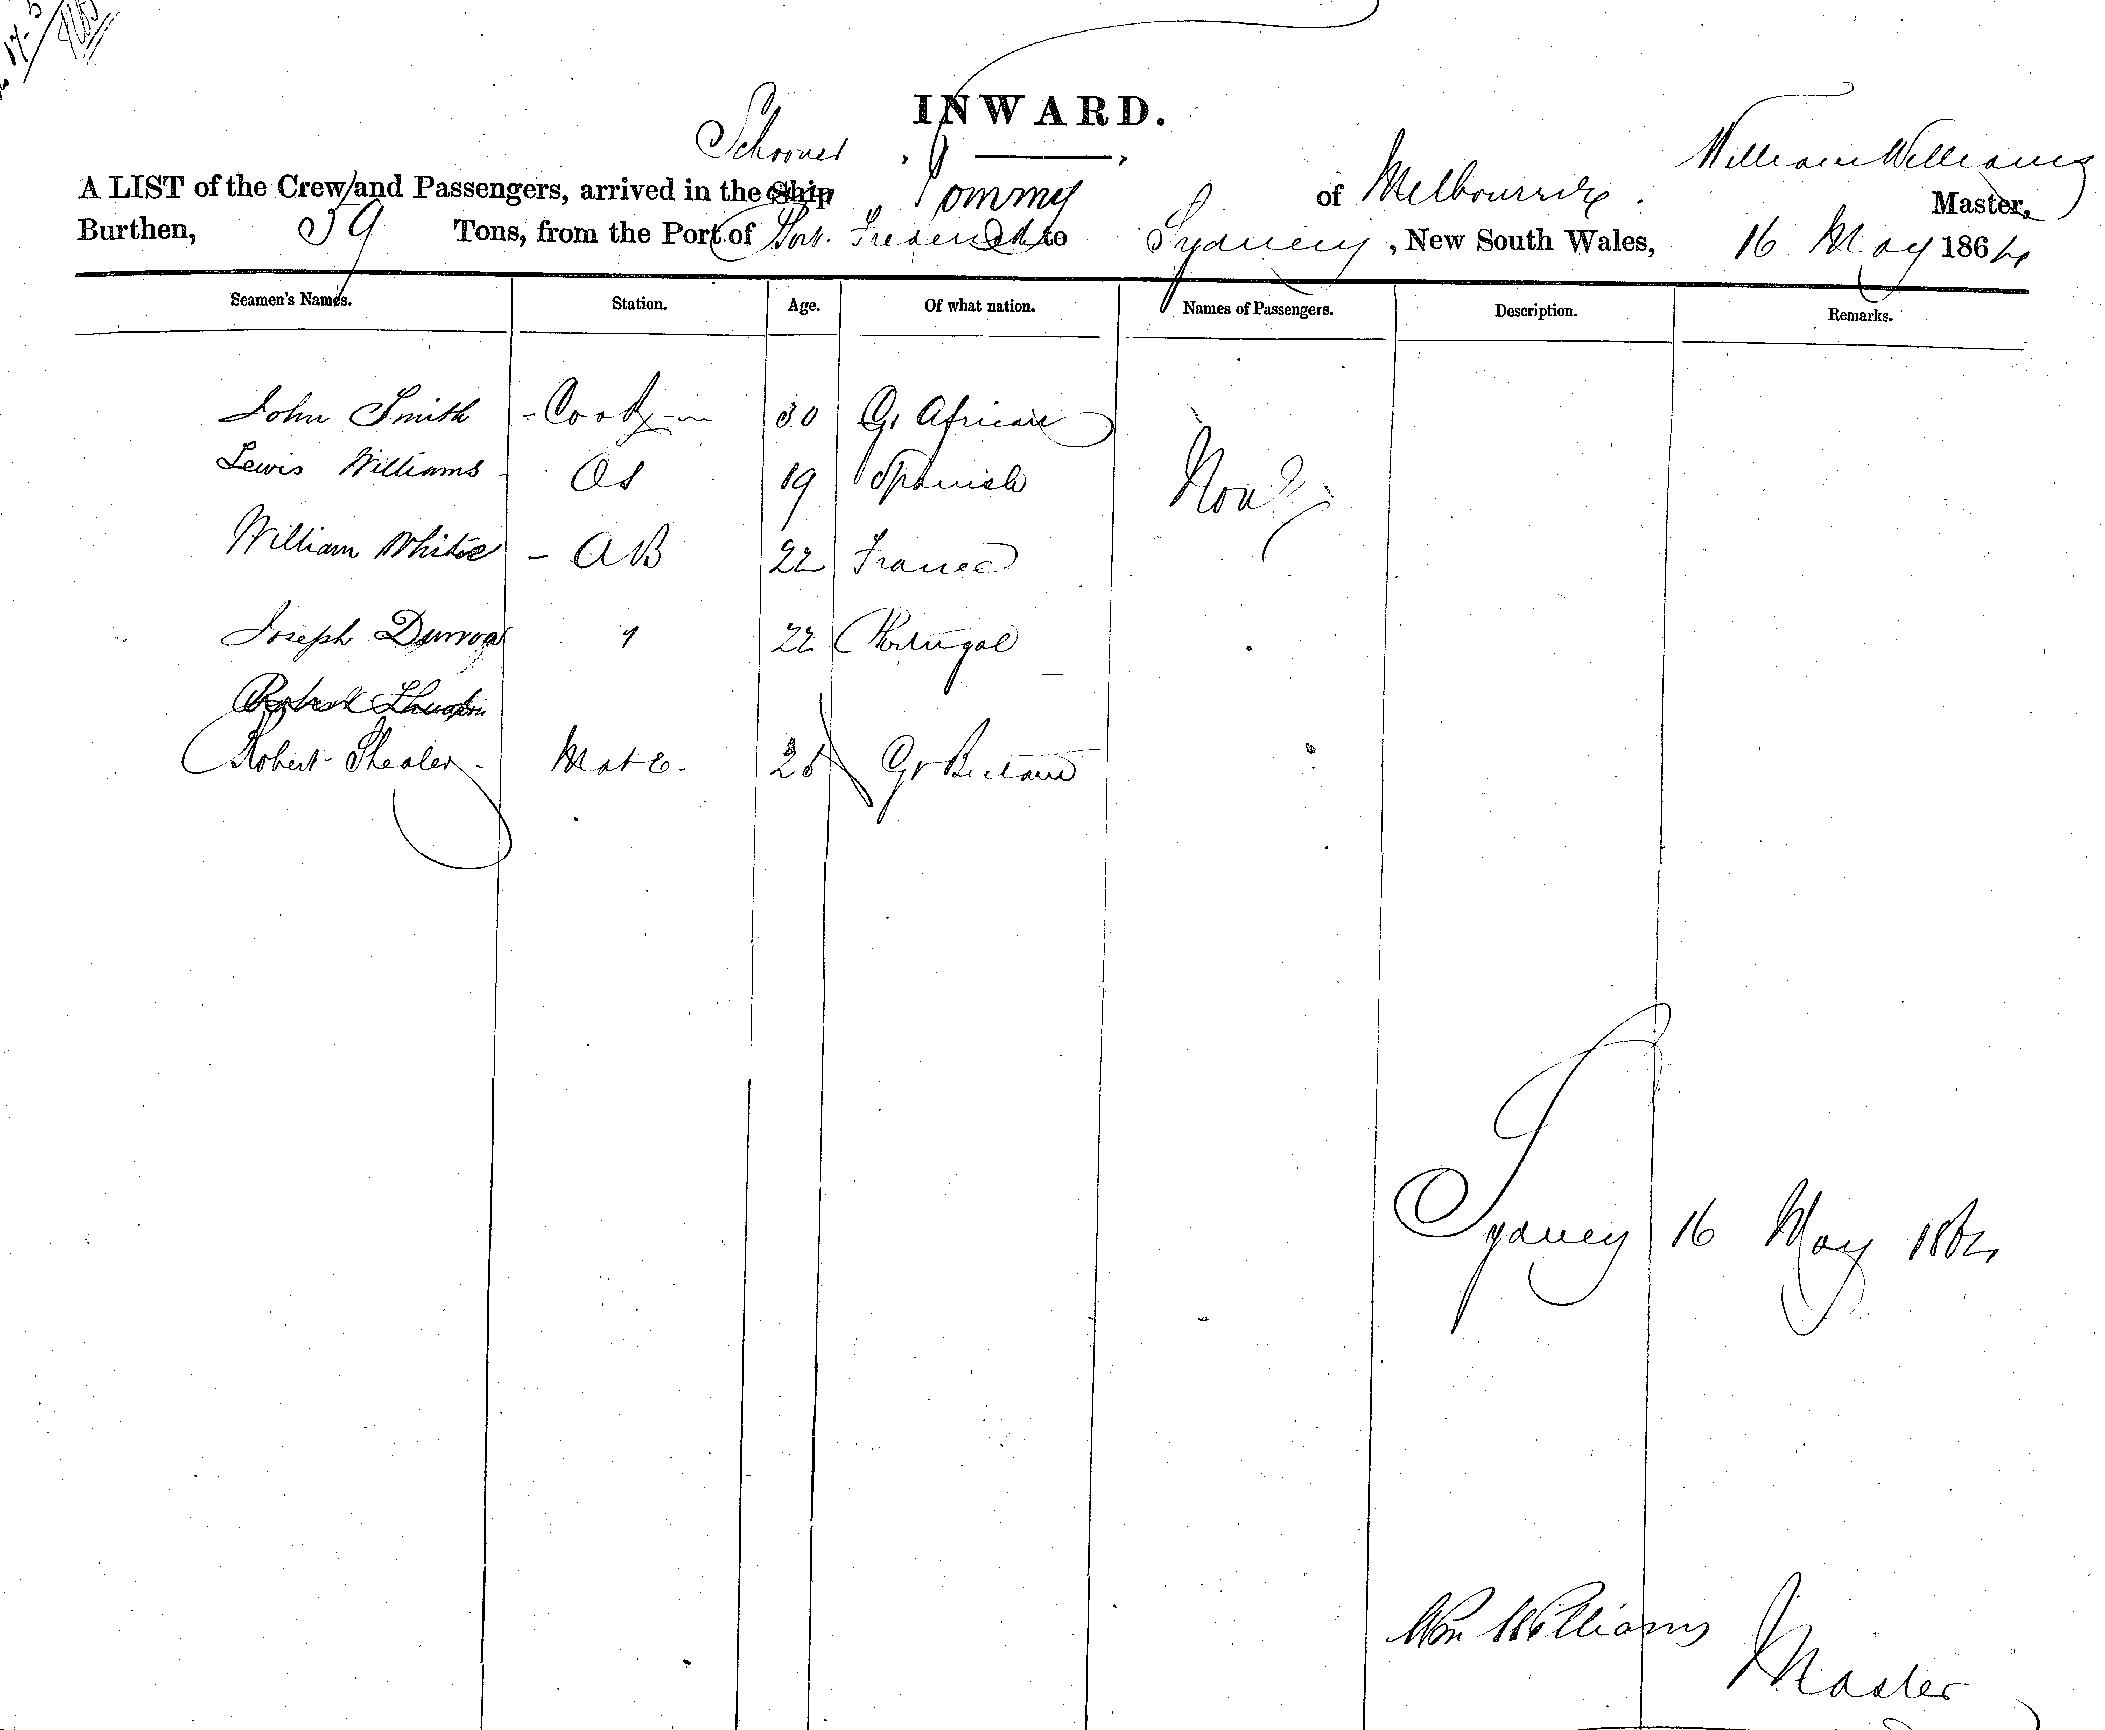 INWARD.
Schooner
William Williams
A LIST of the Crew and Passengers, arrived in the Ship Tommy of Melbourne Master,
Burthen, 59 Tons, from the Port of Port Frederick to Sydney, New South Wales, 16 May 1864
Seamen's Names. Station. Age. Of what nation. Names of Passengers. Description. Remarks.
John Smith - Cook - 30 African
Lewis Williams OS 19 Spanish None
William White - AB 22 France
Joseph " 22 Portugal
Robert
Robert Shealer - Mate. Gr Britain
Sydney 16 May 1864
Wm Williams
Master